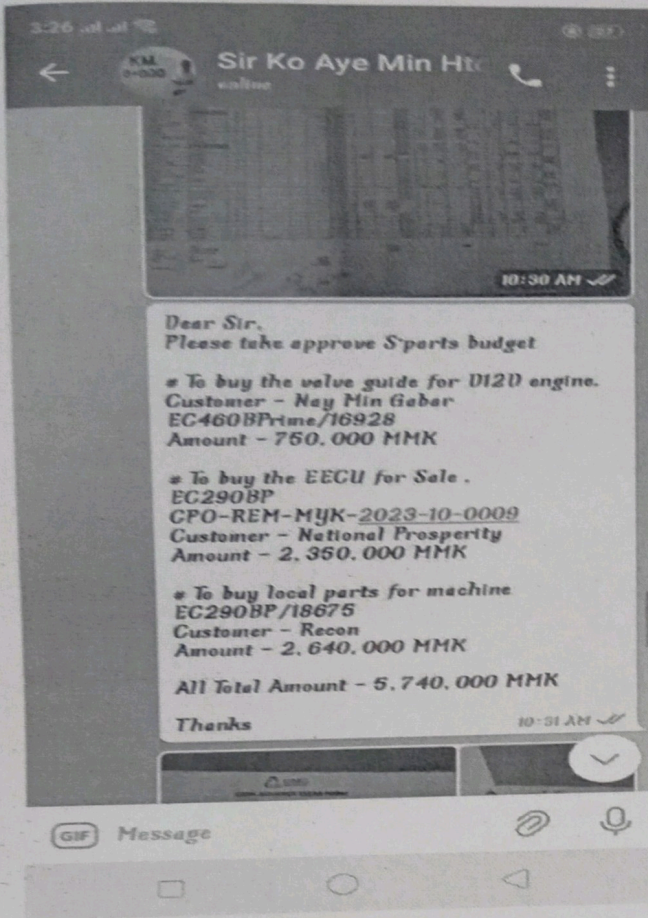 3:26
KM
Sir Ko Aye Min Ht
online
10:30 AM
Dear Sir.
Please take approve S'parts budget
# To buy the valve guide for D12D engine.
Customer - Nay Min Gabar
EC460BPrime/16928
Amount - 750,000 MMK
# To buy the EECU for Sale .
EC290BP
CPO-REM-MYK-2023-10-0009
Customer - National Prosperity
Amount - 2,350,000 MMK
# To buy local parts for machine
EC290BP/18675
Customer - Recon
Amount - 2,640,000 MMK
All Total Amount - 5,740,000 MMK
Thanks
10:31 AM
GIF Message